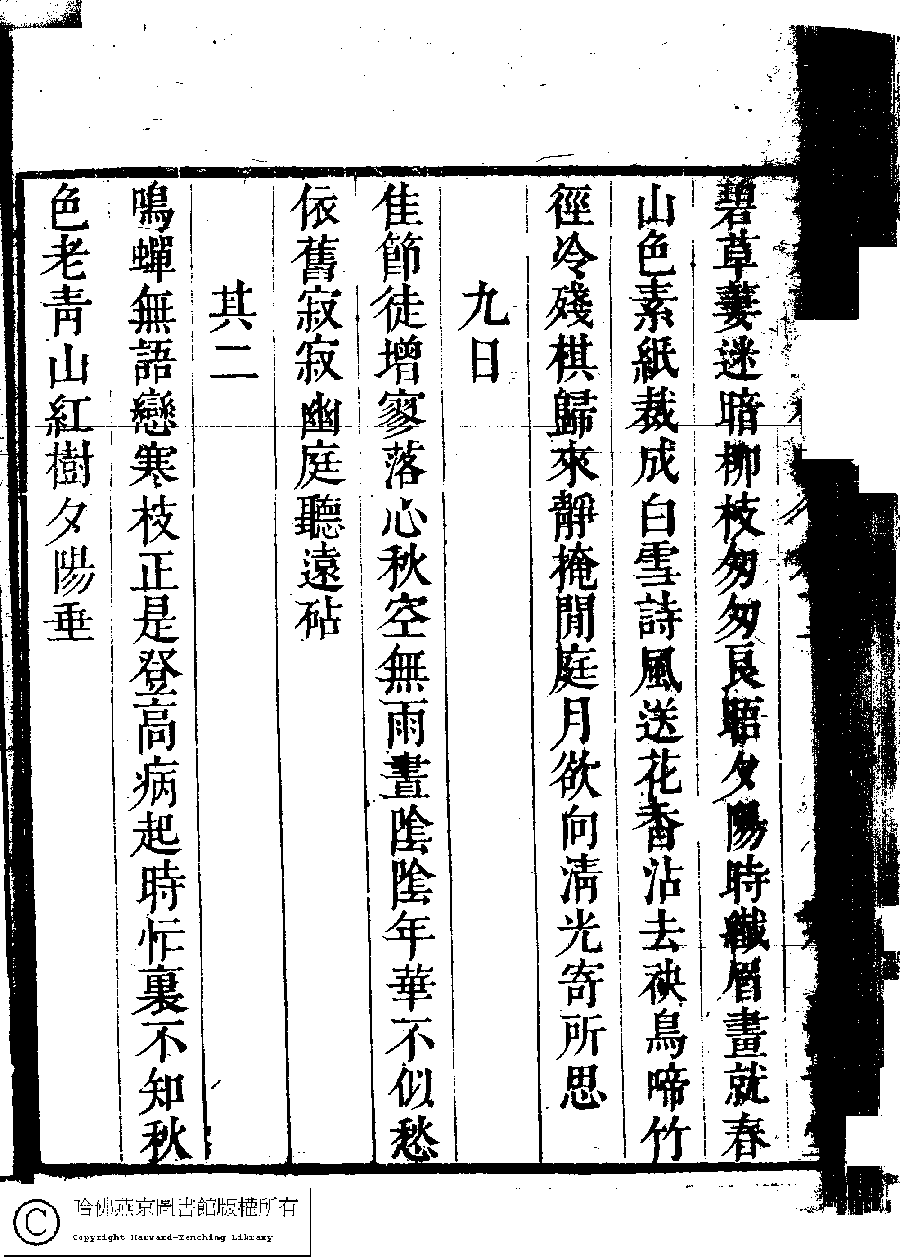 碧草萋迷暗柳枝匆匆良晤夕陽時纖眉畫就春
山色素紙裁成白雪詩風送花香沾去袂鳥啼竹
徑冷殘棋歸來靜掩閒庭月欲向清光寄所思
九日
佳節徒增寥落心秋空無雨晝陰陰年華不似愁
依舊寂寂幽庭聽遠砧
其二
鳴蟬無語戀寒枝正是登高病起時忙裏不知秋
色老青山紅樹夕陽垂
哈佛燕京圖書館版權所有
Copyright Harvard-Yenching Library